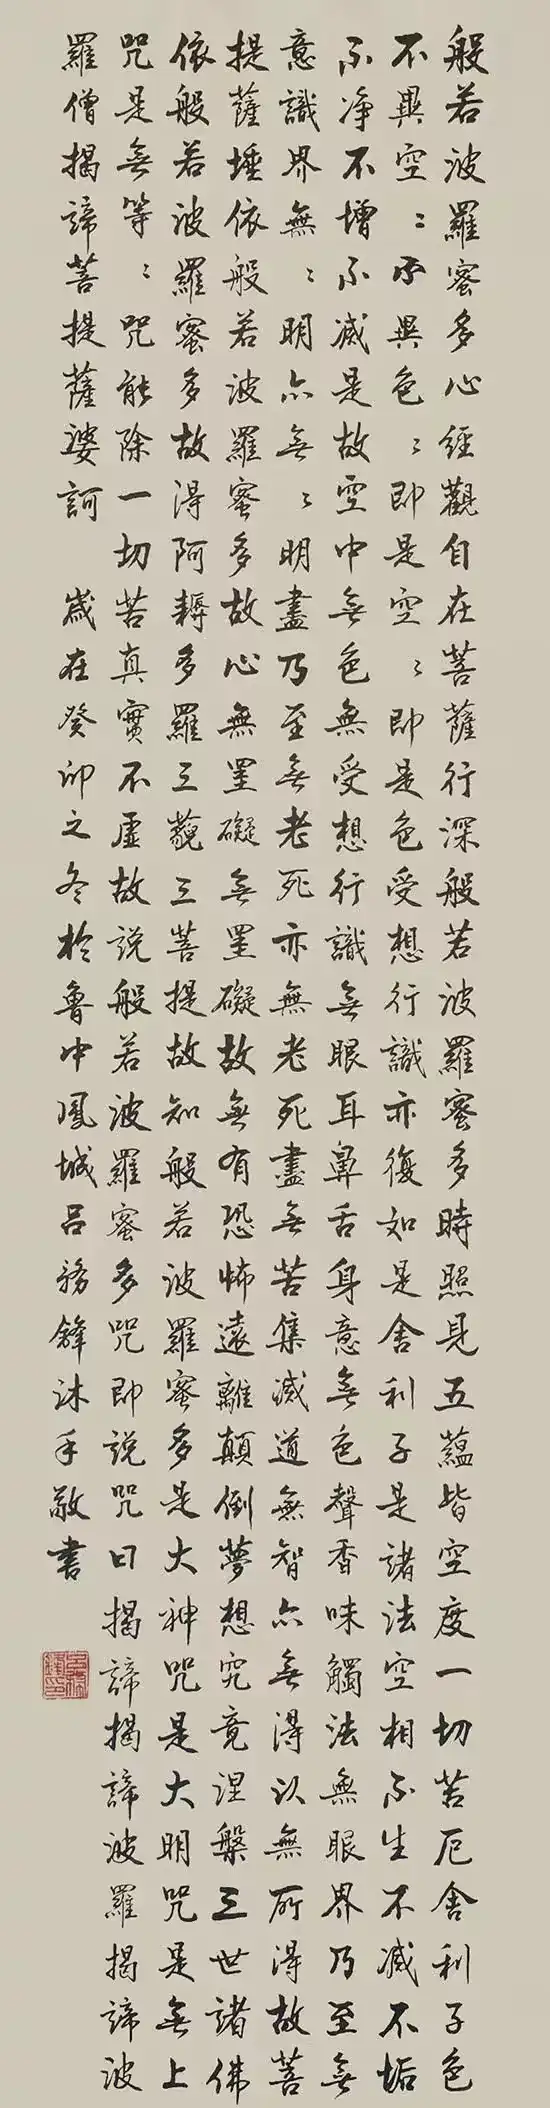 般若波羅蜜多心經觀自在菩薩行深般若波羅蜜多時照見五蘊皆空度一切苦厄舍利子色
不異空〻不異色〻即是空〻即是色受想行識亦復如是舍利子是諸法空相不生不滅不垢
不净不增不減是故空中無色無受想行識無眼耳鼻舌身意無色聲香味觸法無眼界乃至無
意識界無〻明亦無〻明盡乃至無老死亦無老死盡無苦集滅道無智亦無得以無所得故菩
提薩埵依般若波羅蜜多故心無罣礙無罣礙故無有恐怖遠離顛倒夢想究竟涅槃三世諸佛
依般若波羅蜜多故得阿耨多羅三藐三菩提故知般若波羅蜜多是大神咒是大明咒是無上
咒是無等〻咒能除一切苦真實不虛故說般若波羅蜜多咒即說咒曰揭諦揭諦波羅揭諦波
羅僧揭諦菩提薩婆訶 歲在癸卯之冬於魯中鳳城呂務鋒沐手敬書